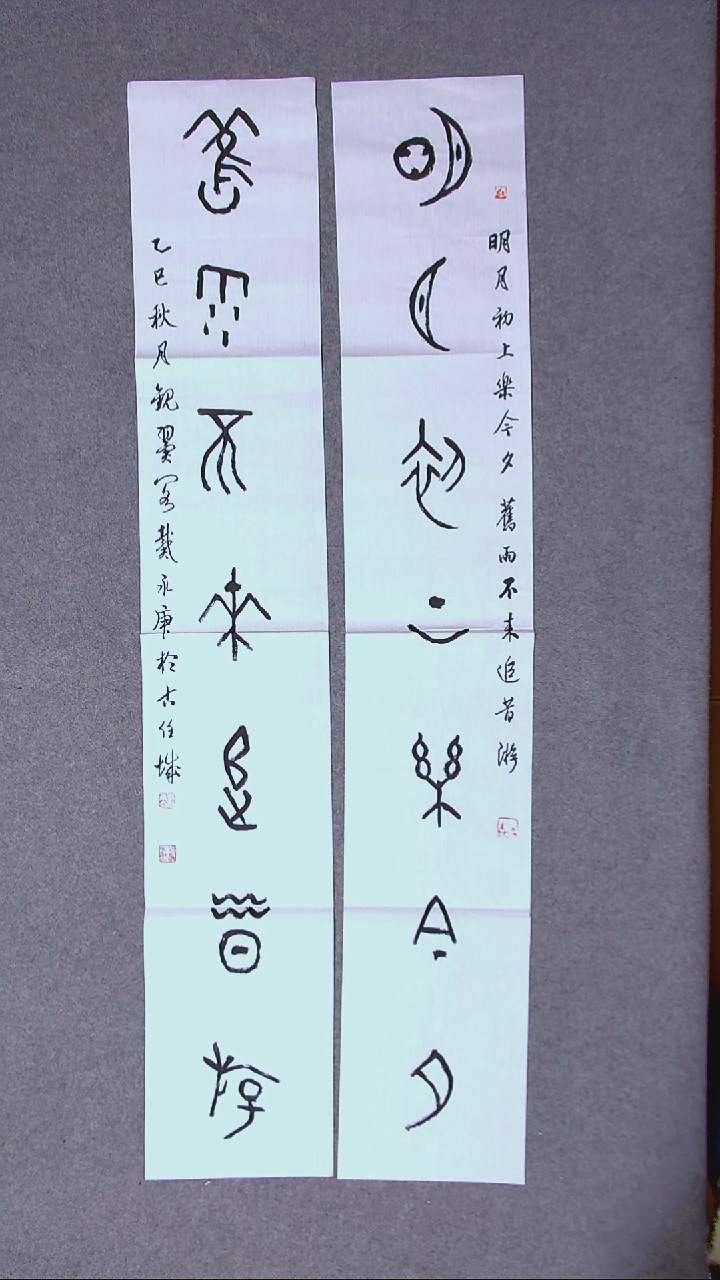 明月初上樂今夕
明月初上樂今夕 舊雨不来追昔游
舊雨不來追昔游
乙巳秋月觀翼閣戴永庚於古任城